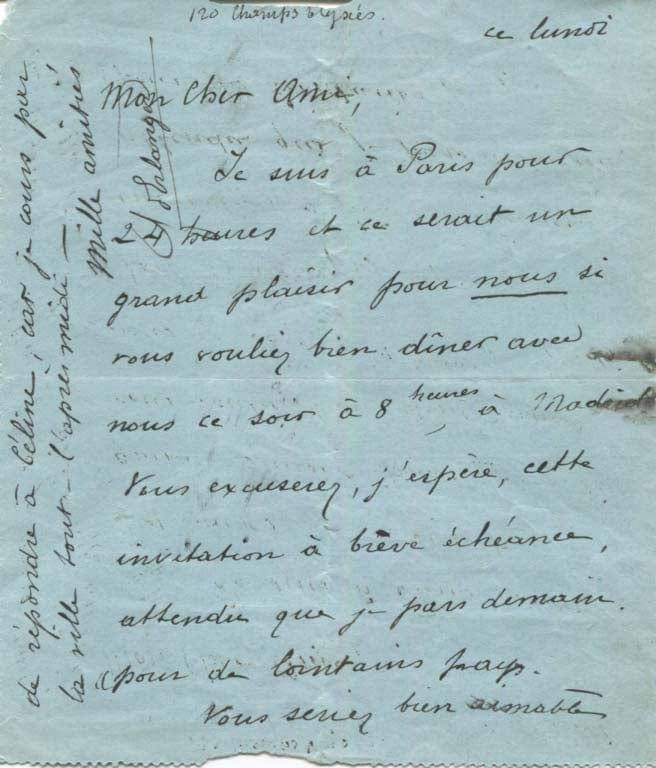 120 Champs Elysées.
ce lundi
Mon Cher Ami,
Je suis à Paris pour
24 heures et ce serait un
grand plaisir pour nous si
vous vouliez bien dîner avec
nous ce soir à 8 heures, à Madrid
Vous excuserez, j'espère, cette
invitation à brève échéance,
attendu que je pars demain.
pour de lointains pays.
Vous seriez bien aimable
de répondre à Céline, car je cours par
la ville tout - l'après midi -
Mille amitiés
d'Erlanger